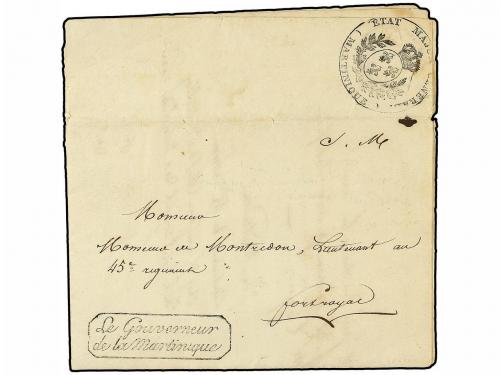 MARTINIQUE ETAT MAJOR GENERAL
S. M
Monsieur
Monsieur de Montredon, Lieutenant au
45e regiment
fortroyal
Le Gouverneur
de la Martinique